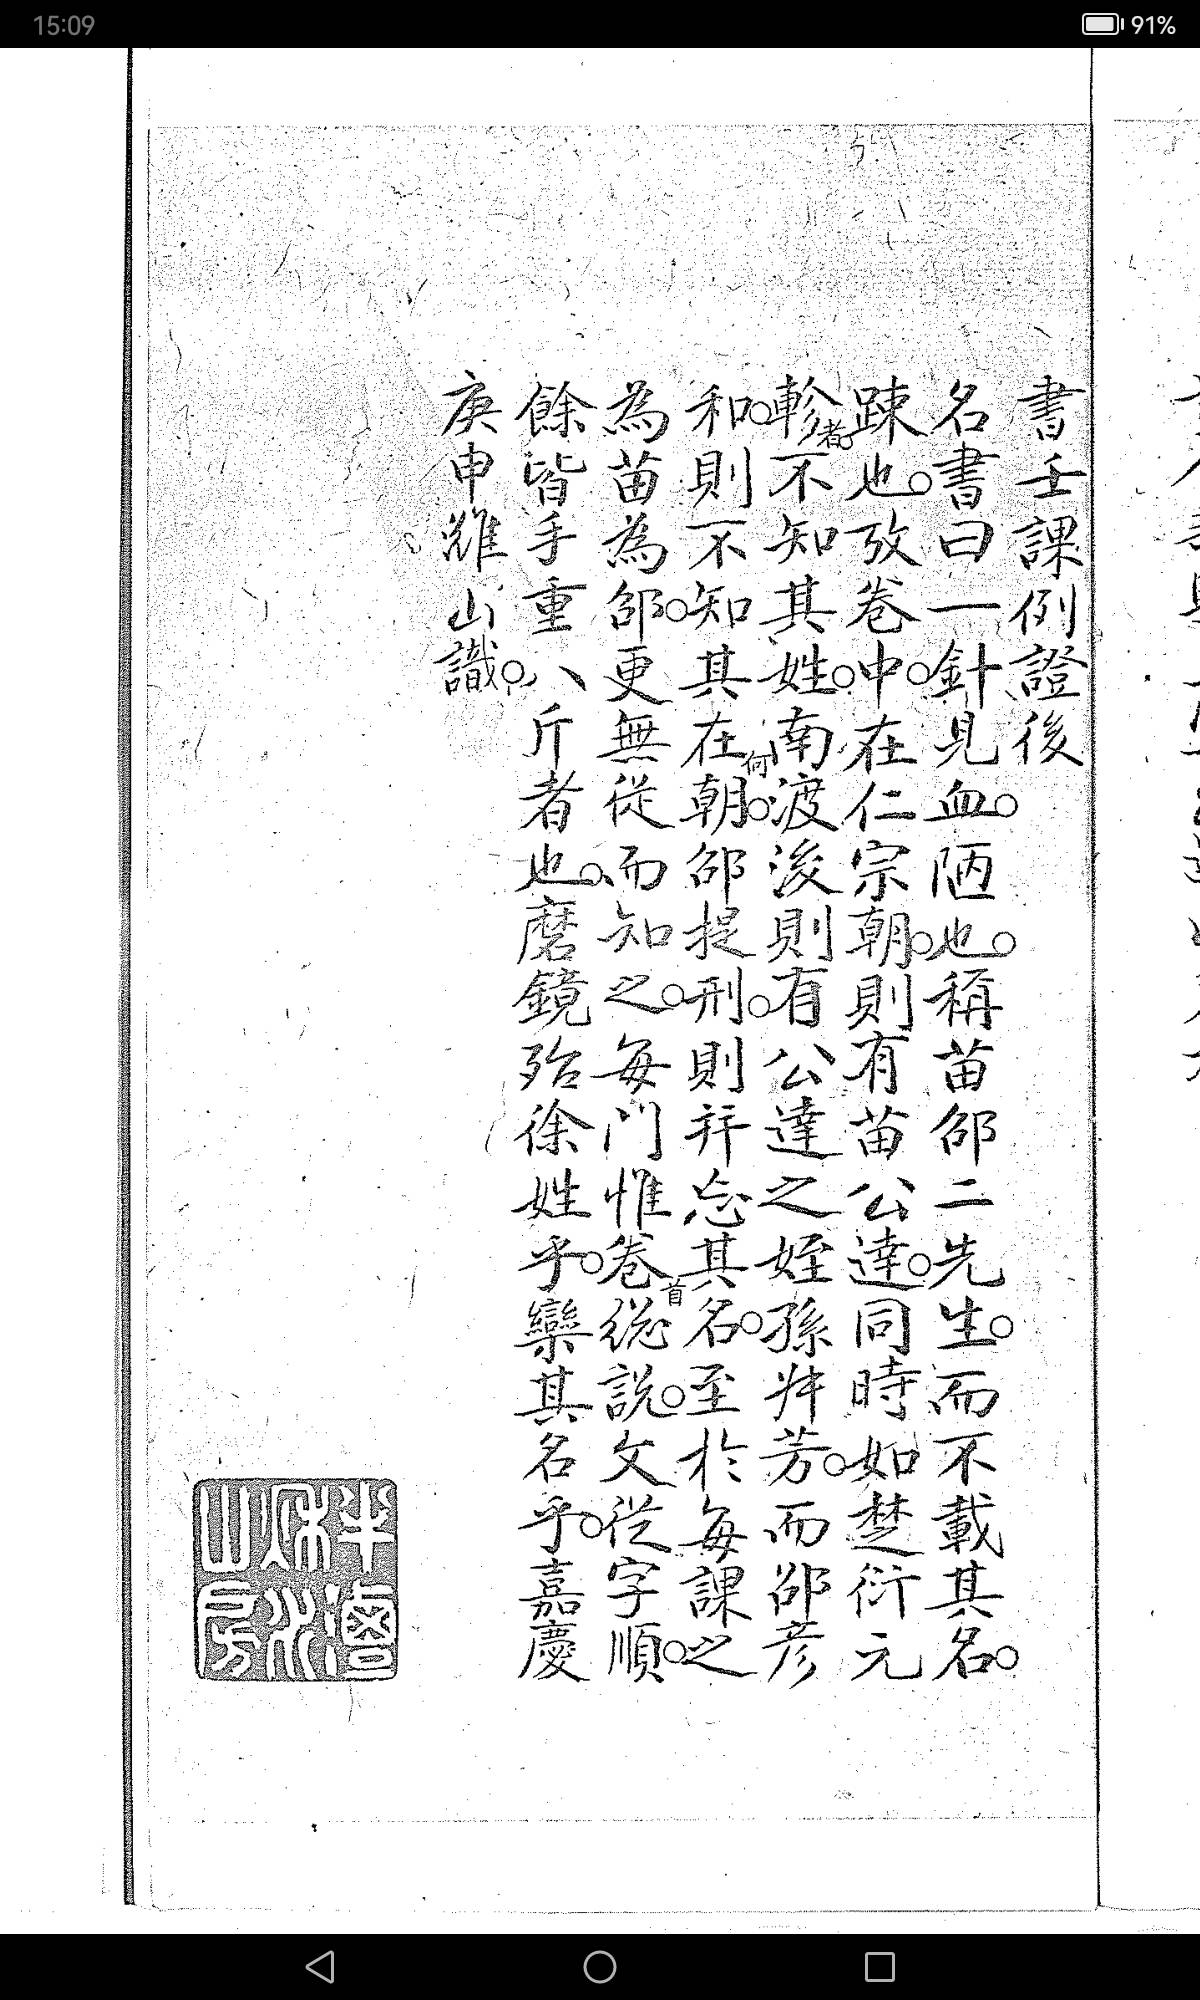 15:09
91%
書壬課例證後
名書曰一針見血。陋也。稱苗邵二先生。而不載其名。
踈也。攷卷中。在仁宗朝。則有苗公達。同時如楚衍元
軫者。不知其姓。南渡後則有公達之姪孫叔芳。而邵彦
和。則不知其在何朝。邵提刑。則并忘其名。至於每課之
為苗為邵。更無從而知之。每門惟卷首總説。文從字順。
餘皆手重八斤者也。磨鏡殆徐姓乎。欒其名乎。嘉慶
庚申濰山識。
半灣秋水山房